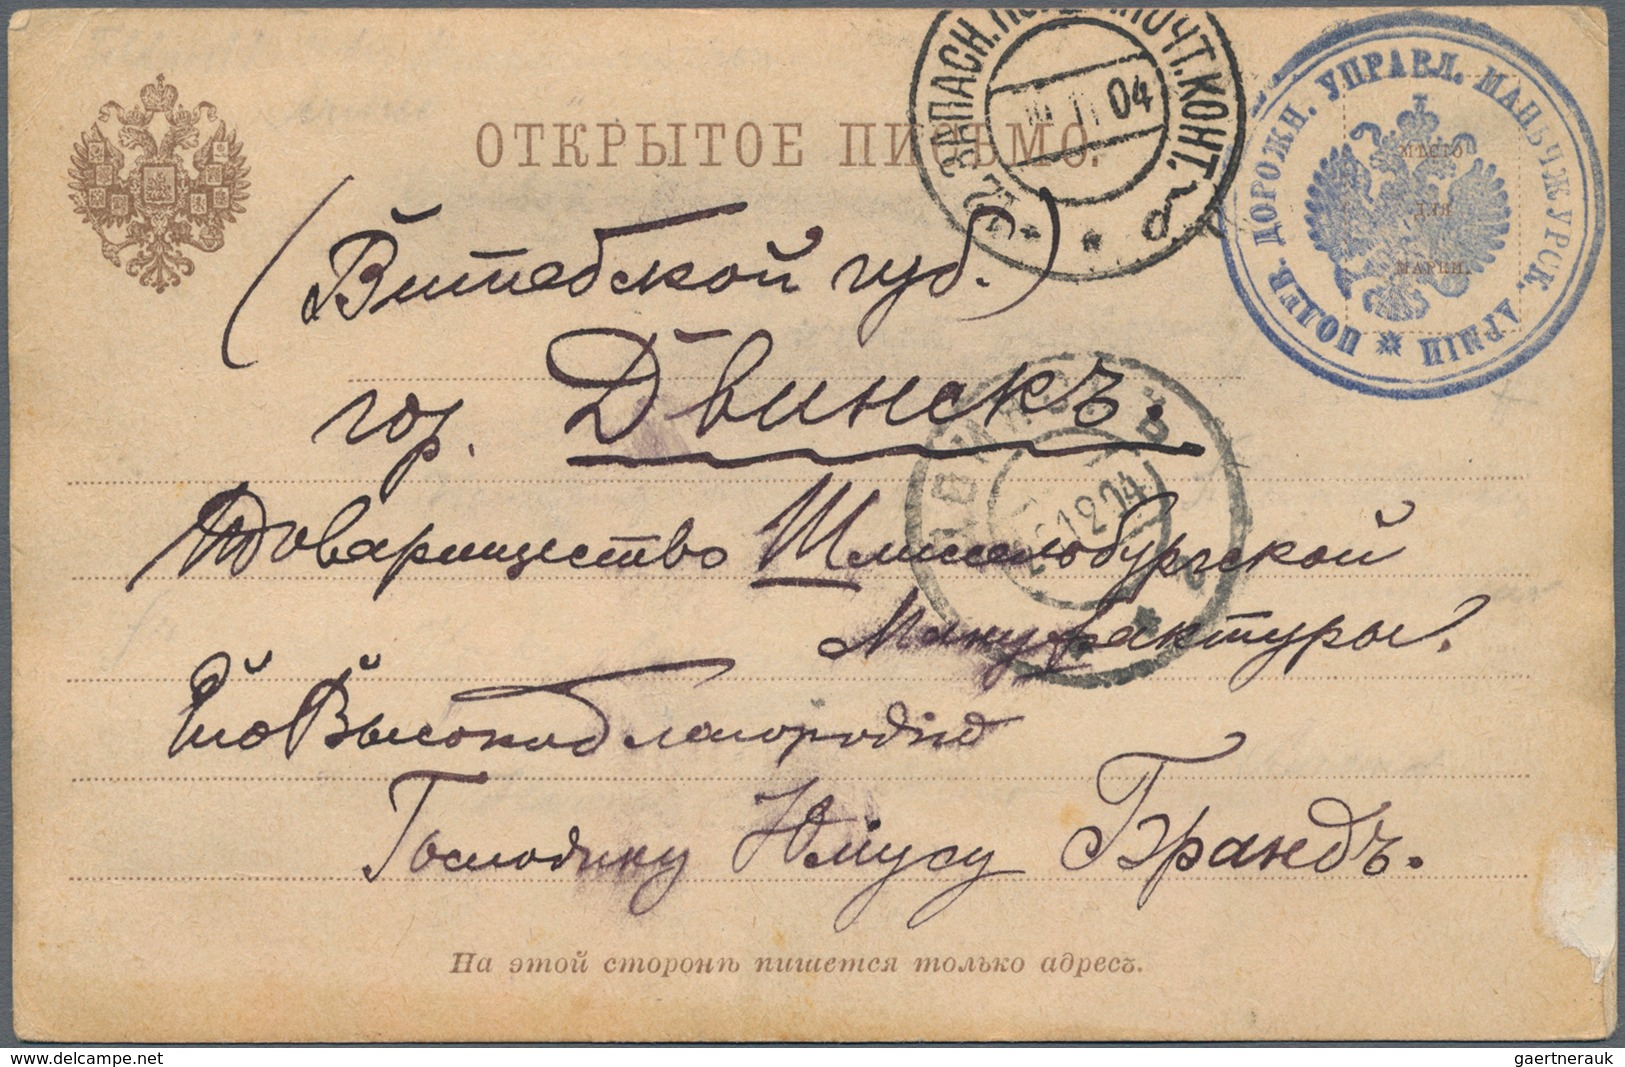 ОТКРЫТОЕ ПИСЬМО.
ЗАПАСН. ПОЧТ. КОНТ.
04
ПОЛЕВ. ДОРОЖН. УПРАВЛ. МАНЬЧЖУРСК. АРМІИ
МѢСТО
ДЛЯ
МАРКИ.
(Витебской губ.)
гор. Двинскъ.
12 04
Товарищество Шлиссельбургской
Мануфактуры.
Его Высокоблагородію
Господину Юліусу Брандъ.
На этой сторонѣ пишется только адресъ.
www.delcampe.net
gaertnerauk